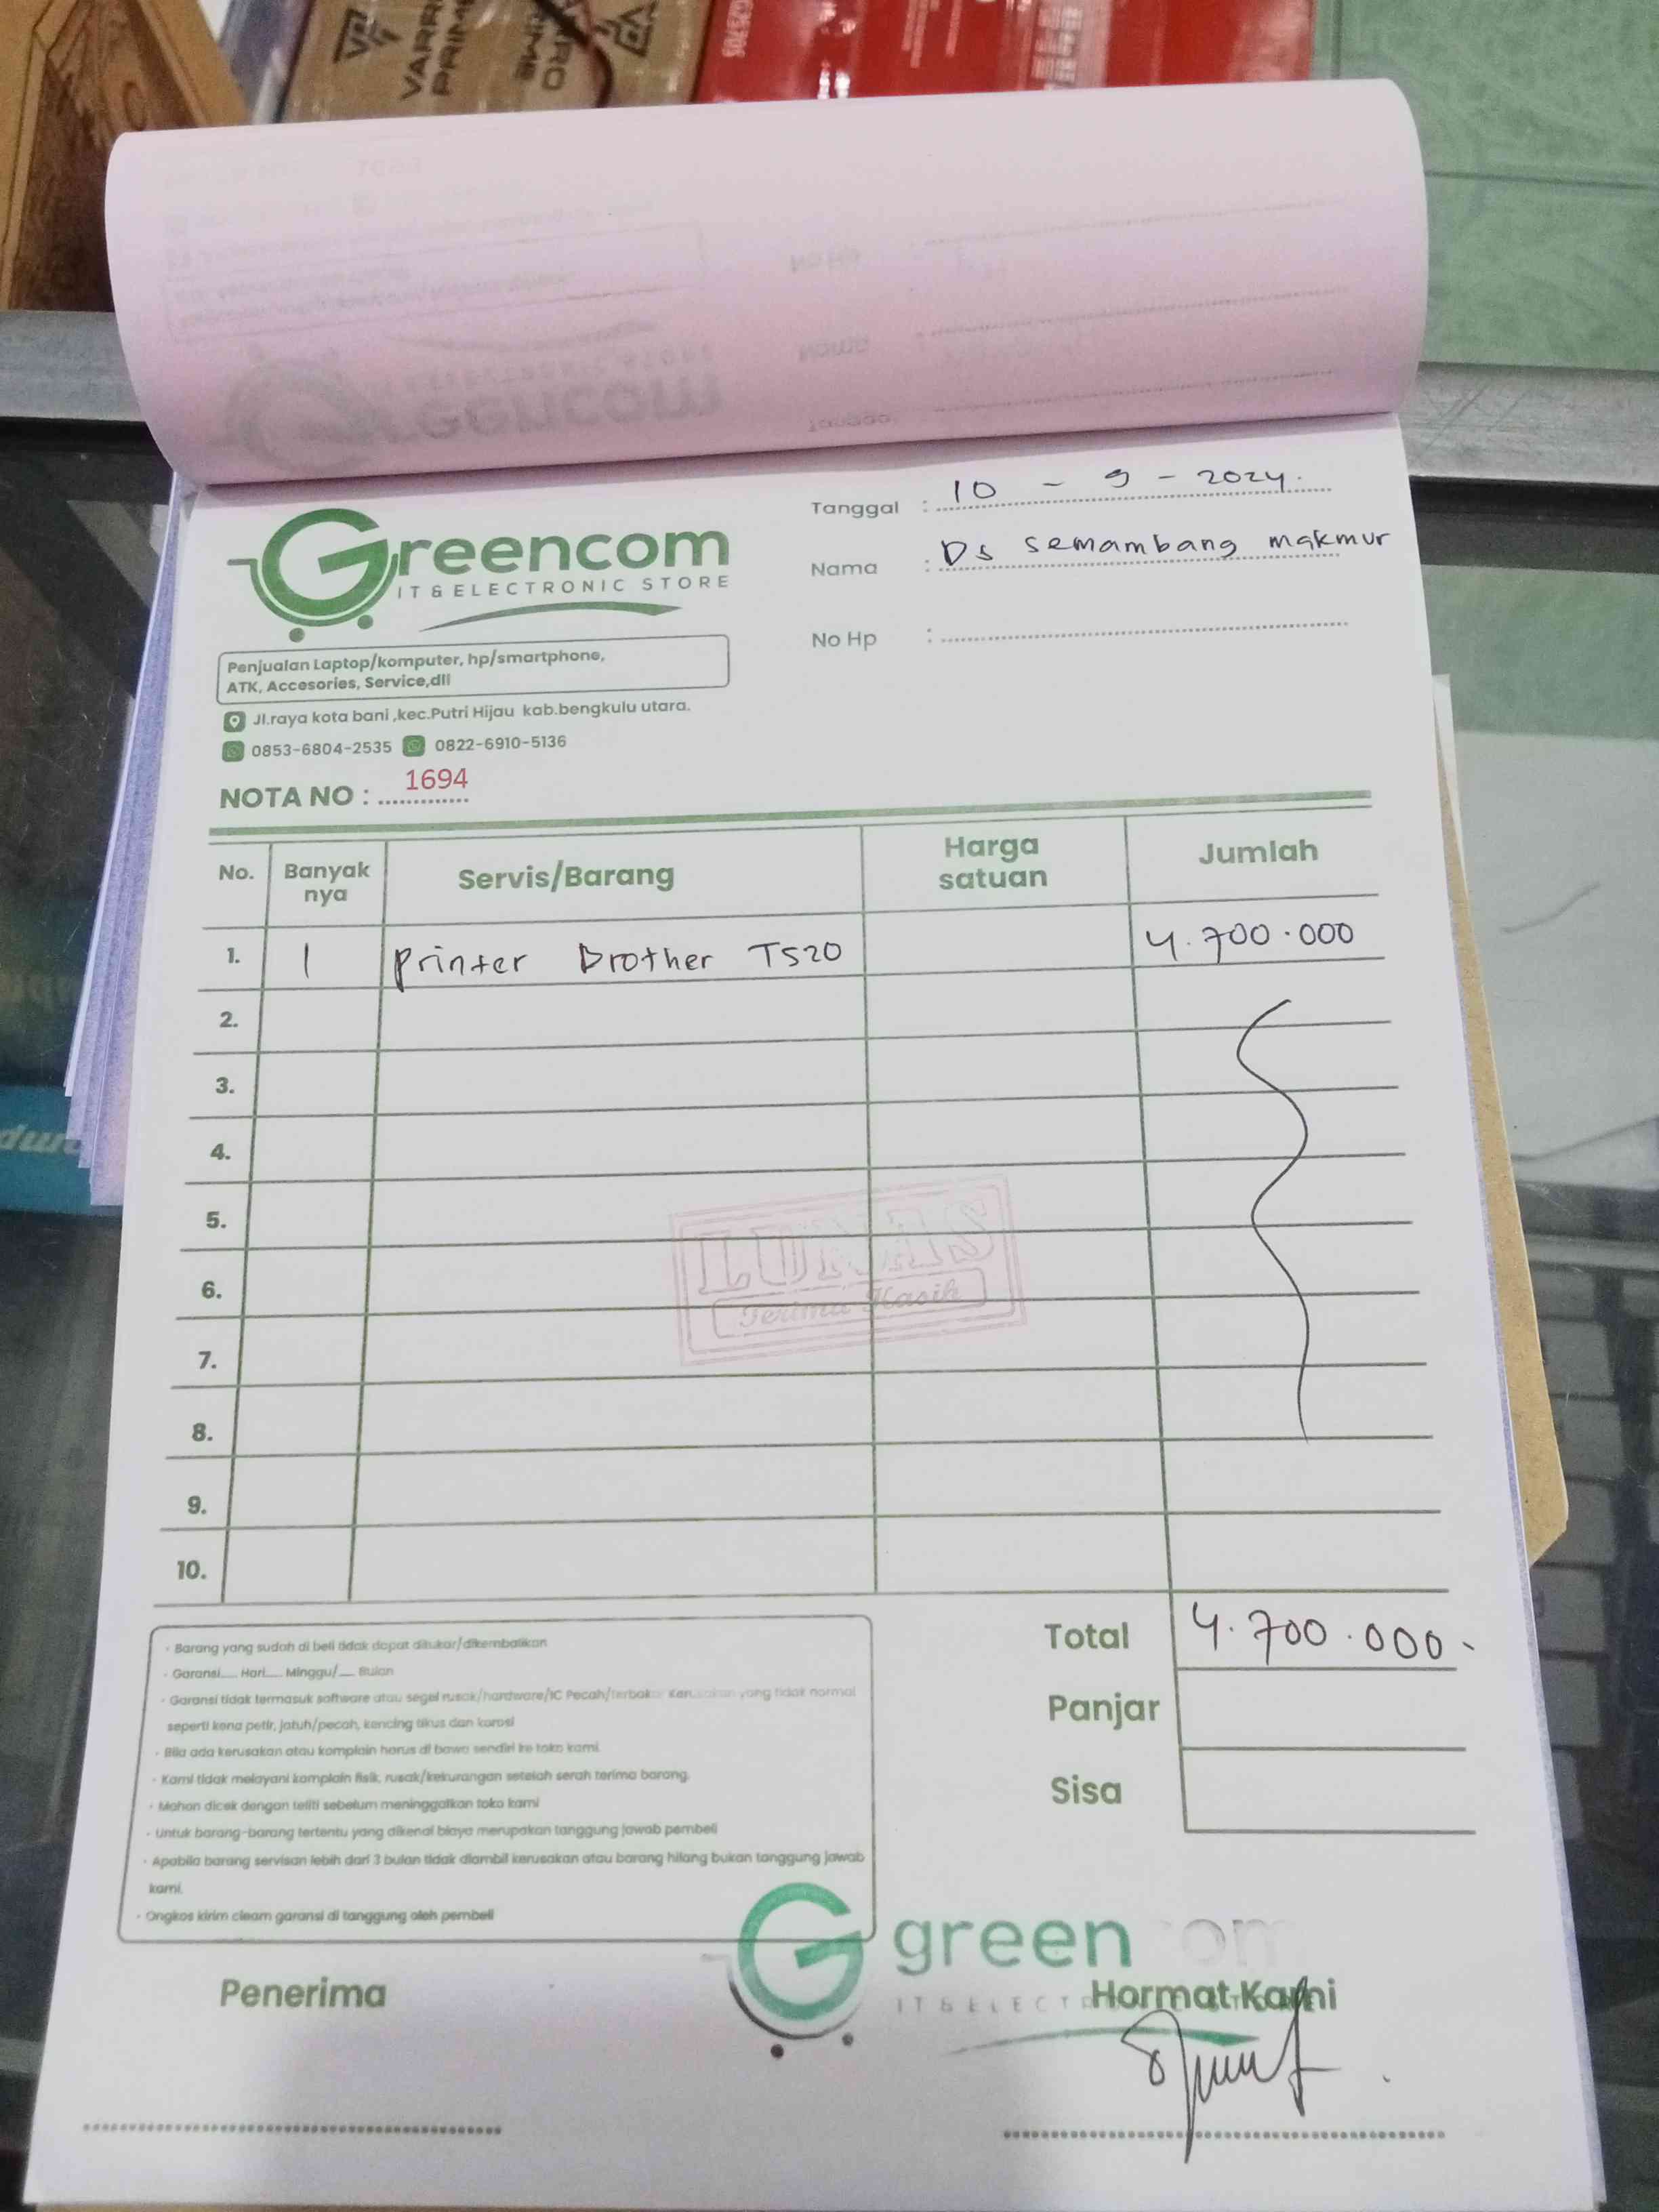 VARRO
PRIME
Greencom
IT & ELECTRONIC STORE
Tanggal : 10 - 9 - 2024.
Nama : Ds semambang makmur
No Hp :
Penjualan Laptop/komputer, hp/smartphone,
ATK, Accesories, Service,dll
Jl.raya kota bani ,kec.Putri Hijau kab.bengkulu utara.
0853-6804-2535 0822-6910-5136
NOTA NO : 1694
No. Banyak nya Servis/Barang Harga satuan Jumlah
1. 1 Printer Brother T520 4.700.000
2.
3.
4.
5.
6.
7.
8.
9.
10.
LUNAS
Terima Kasih
Total 4.700.000
Panjar
Sisa
- Barang yang sudah di beli tidak dapat ditukar/dikembalikan
- Garansi.... Hari.... Minggu/.... Bulan
- Garansi tidak termasuk software atau segel rusak/hardware/IC Pecah/terbakar Kerusakan yang tidak normal
seperti kena petir, jatuh/pecah, kencing tikus dan korosi
- Bila ada kerusakan atau komplain harus di bawa sendiri ke toko kami
- Kami tidak melayani komplain fisik, rusak/kekurangan setelah serah terima barang.
- Mohon dicek dengan teliti sebelum meninggalkan toko kami
- Untuk barang-barang tertentu yang dikenai biaya merupakan tanggung jawab pembeli
- Apabila barang servisan lebih dari 3 bulan tidak diambil kerusakan atau barang hilang bukan tanggung jawab
kami.
- Ongkos kirim cleam garansi di tanggung oleh pembeli
greencom
IT & ELECT
Penerima
Hormat Kami